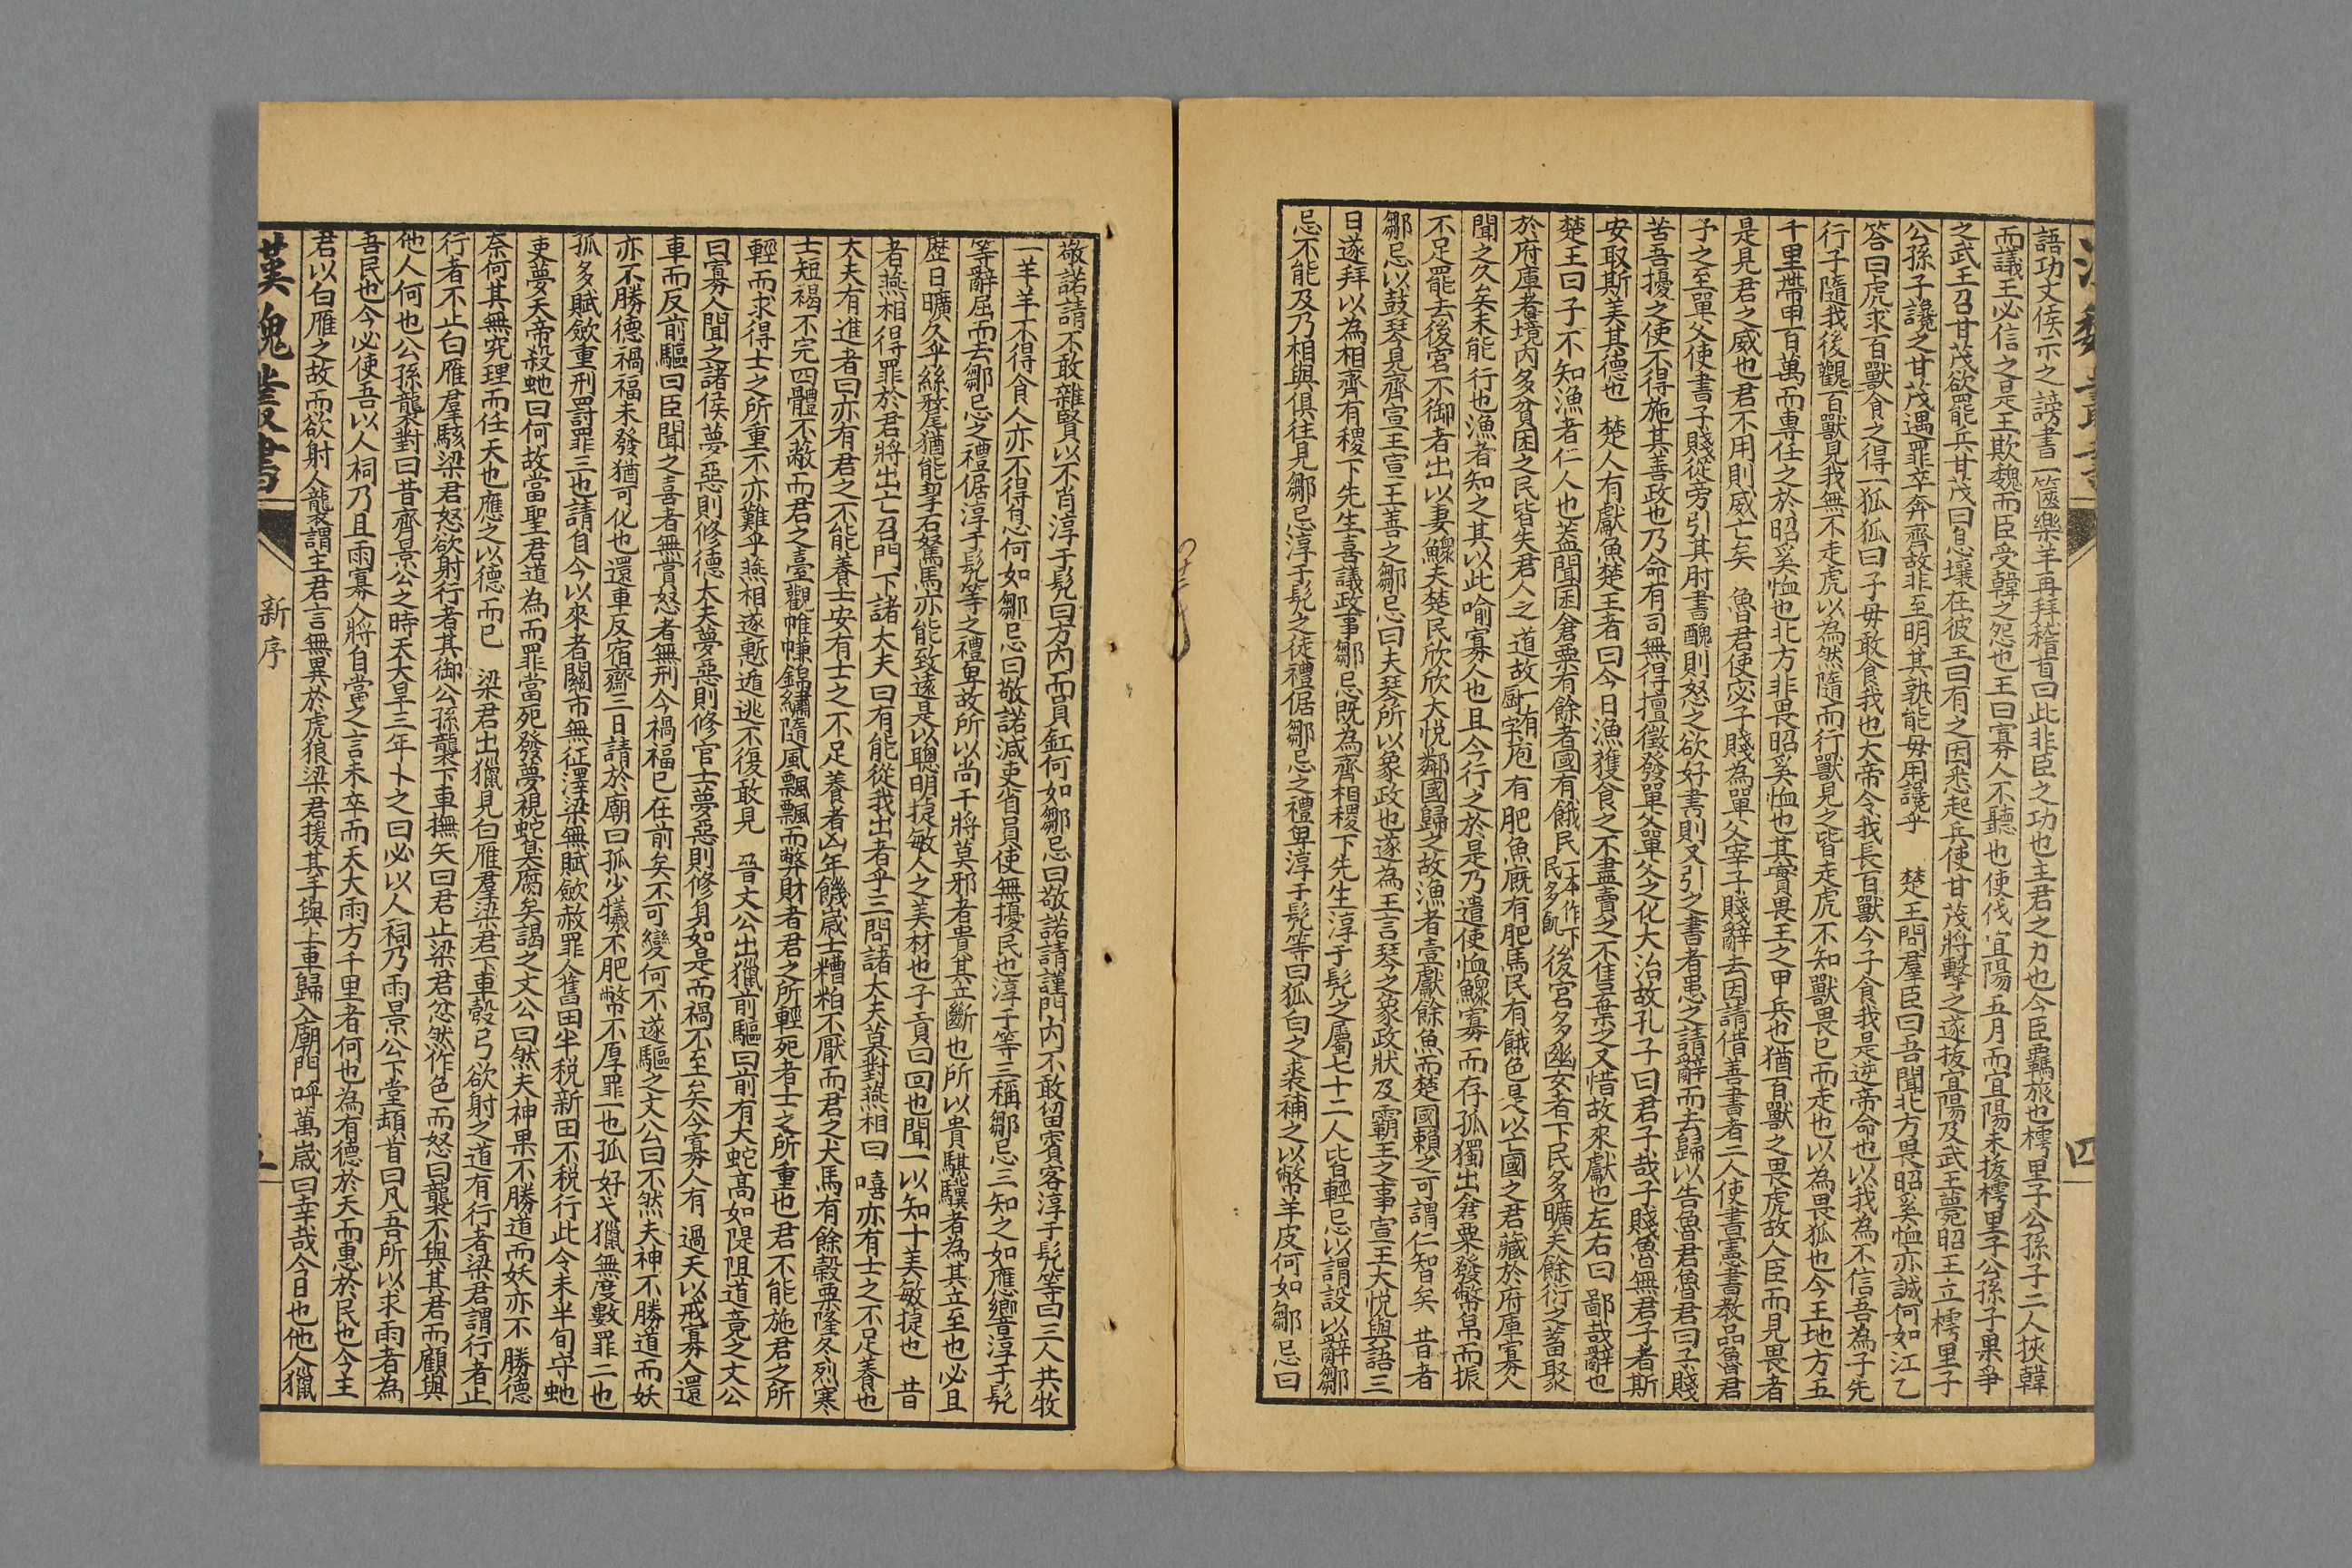 語功文侯示之謗書一篋樂羊再拜稽首曰此非臣之功也主君之力也今臣羈旅也樗里子公孫子二人挾韓
而議王必信之是王欺魏而臣受韓之怨也王曰寡人不聽也使伐宜陽五月而宜陽未拔樗里子公孫子果爭
之武王召甘茂欲罷兵甘茂曰息壤在彼王曰有之因悉起兵使甘茂將擊之遂拔宜陽及武王薨昭王立樗里子
公孫子讒之甘茂遇罪卒奔齊故非至明其孰能毋用讒乎　楚王問羣臣曰吾聞北方畏昭奚恤亦誠何如江乙
答曰虎求百獸食之得一狐狐曰子毋敢食我也大帝令我長百獸今子食我是逆帝命也以我為不信吾為子先
行子隨我後觀百獸見我無不走虎以為然隨而行獸見之皆走虎不知獸畏己而走也以為畏狐也今王地方五
千里帶甲百萬而專任之於昭奚恤也北方非畏昭奚恤也其實畏王之甲兵也猶百獸之畏虎故人臣而見畏者
是見君之威也君不用則威亡矣　魯君使宓子賤為單父宰子賤辭去因請借善書者二人使書憲書教品魯君
予之至單父使書子賤從旁引其肘書醜則怒之欲好書則又引之書者患之請辭而去歸以告魯君魯君曰子賤
苦吾擾之使不得施其善政也乃命有司無得擅徵發單父單父之化大治故孔子曰君子哉子賤魯無君子者斯
安取斯美其德也　楚人有獻魚楚王者曰今日漁獲食之不盡賣之不售棄之又惜故來獻也左右曰鄙哉辭也
楚王曰子不知漁者仁人也葢聞囷倉粟有餘者國有餓民一本作下民多飢後宮多幽女者下民多曠夫餘衍之蓄聚
於府庫者境內多貧困之民皆失君人之道故厨一有字庖有肥魚廐有肥馬民有餓色是以亡國之君藏於府庫寡人
聞之久矣未能行也漁者知之其以此喻寡人也且今行之於是乃遣使恤鰥寡而存孤獨出倉粟發幣帛而振
不足罷去後宮不御者出以妻鰥夫楚民欣欣大悅鄰國歸之故漁者壹獻餘魚而楚國賴之可謂仁智矣　昔者
鄒忌以鼓琴見齊宣王宣王善之鄒忌曰夫琴所以象政也遂為王言琴之象政狀及霸王之事宣王大悅與語三
日遂拜以為相齊有稷下先生喜議政事鄒忌既為齊相稷下先生淳于髡之屬七十二人皆輕忌以謂設以辭鄒
忌不能及乃相與俱往見鄒忌淳于髡之徒禮倨鄒忌之禮卑淳于髡等曰狐白之裘補之以弊羊皮何如鄒忌曰
四
敬諾請不敢雜賢以不肖淳于髡曰方內而員釭何如鄒忌曰敬諾請謹門內不敢留賓客淳于髡等曰三人共牧
一羊羊不得食人亦不得息何如鄒忌曰敬諾減吏省員使無擾民也淳于等三稱鄒忌三知之如應響淳于髡
等辭屈而去鄒忌之禮倨淳于髡等之禮卑故所以尚干將莫邪者貴其立斷也所以貴騏驥者為其立至也必且
歷日曠久乎絲氂猶能挈石駑馬亦能致遠是以聰明捷敏人之美材也子貢曰回也聞一以知十美敏捷也　昔
者燕相得罪於君將出亡召門下諸大夫曰有能從我出者乎三問諸大夫莫對燕相曰嘻亦有士之不足養也
大夫有進者曰亦有君之不能養士安有士之不足養者凶年饑歲士糟粕不厭而君之犬馬有餘穀粟隆冬烈寒
士短褐不完四體不蔽而君之臺觀帷㡘錦繡隨風飄飄而弊財者君之所輕死者士之所重也君不能施君之所
輕而求得士之所重不亦難乎燕相遂慙遁逃不復敢見　晉文公出獵前驅曰前有大蛇高如隄阻道竟之文公
曰寡人聞之諸侯夢惡則修德大夫夢惡則修官士夢惡則修身如是而禍不至矣今寡人有過天以戒寡人還
車而反前驅曰臣聞之喜者無賞怒者無刑今禍福已在前矣不可變何不遂驅之文公曰不然夫神不勝道而妖
亦不勝德禍福未發猶可化也還車反宿齋三日請於廟曰孤少犧不肥幣不厚罪一也孤好弋獵無度數罪二也
孤多賦斂重刑罰罪三也請自今以來者關市無征澤梁無賦斂赦罪人舊田半稅新田不稅行此令未半旬守虵
吏夢天帝殺虵曰何故當聖君道為而罪當死發夢視蛇臭腐矣謁之文公曰然夫神果不勝道而妖亦不勝德
奈何其無究理而任天也應之以德而已　梁君出獵見白雁羣梁君下車彀弓欲射之道有行者梁君謂行者止
行者不止白雁羣駭梁君怒欲射行者其御公孫襲下車撫矢曰君止梁君忿然作色而怒曰襲不與其君而顧與
他人何也公孫襲對曰昔齊景公之時天大旱三年卜之曰必以人祠乃雨景公下堂頓首曰凡吾所以求雨者為
吾民也今必使吾以人祠乃且雨寡人將自當之言未卒而天大雨方千里者何也為有德於天而惠於民也今主
君以白雁之故而欲射人襲謂主君言無異於虎狼梁君援其手與上車歸入廟門呼萬歲曰幸哉今日也他人獵
漢魏叢書
新序